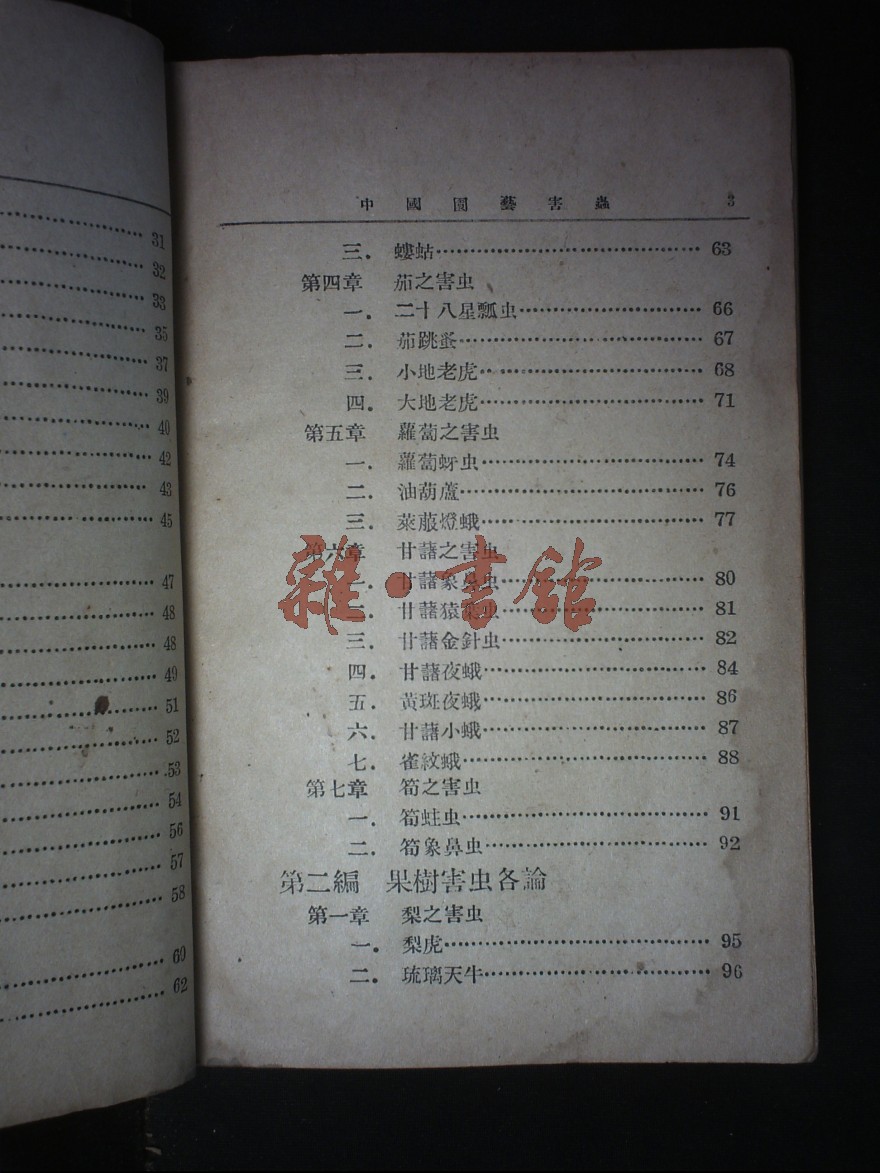 31
32
33
35
37
39
40
42
43
45
47
48
48
49
51
52
53
54
56
57
58
60
62
中國園藝害蟲 3
三. 螻蛄 63
第四章 茄之害虫
一. 二十八星瓢虫 66
二. 茄跳蚤 67
三. 小地老虎 68
四. 大地老虎 71
第五章 蘿蔔之害虫
一. 蘿蔔蚜虫 74
二. 油葫蘆 76
三. 萊菔燈蛾 77
第六章 甘藷之害虫
一. 甘藷象鼻虫 80
二. 甘藷猿葉虫 81
三. 甘藷金針虫 82
四. 甘藷夜蛾 84
五. 黃斑夜蛾 86
六. 甘藷小蛾 87
七. 雀紋蛾 88
第七章 筍之害虫
一. 筍蛀虫 91
二. 筍象鼻虫 92
第二編 果樹害虫各論
第一章 梨之害虫
一. 梨虎 95
二. 琉璃天牛 96
雜·書館